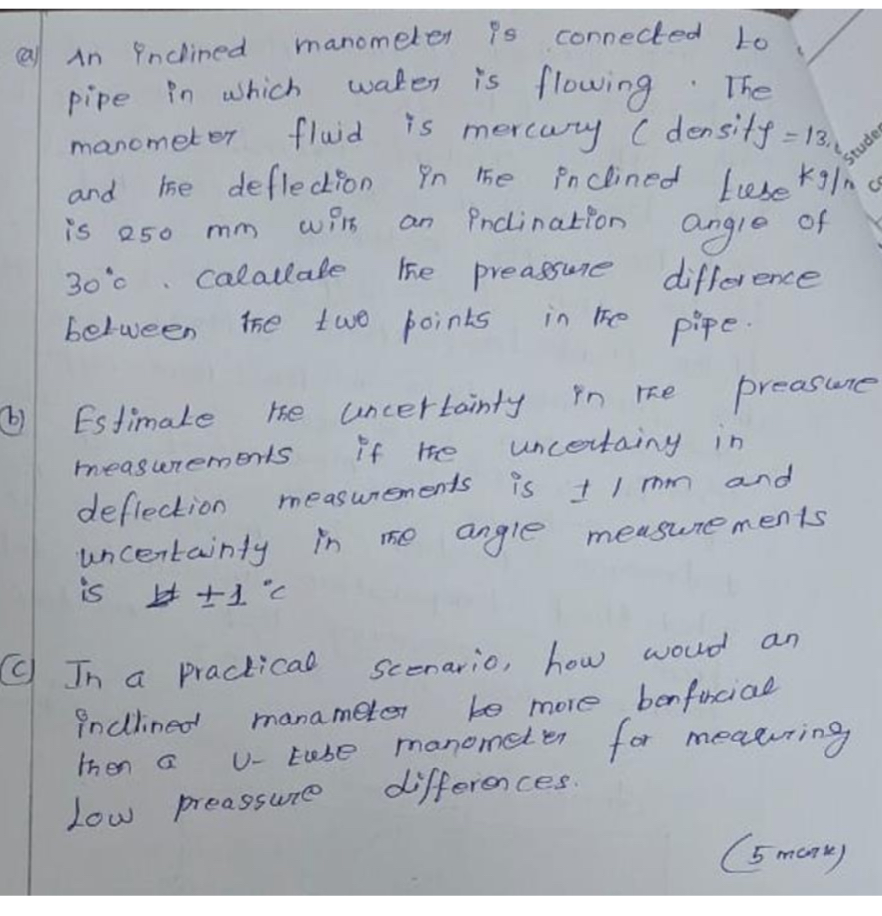 a) An inclined manometer is connected to
pipe in which water is flowing. The
manometer fluid is mercury (density = 13.
Studen
and the deflection in the inclined tube kg/
is 250 mm with an inclination angle of
30°c. Calculate the preassure difference
between the two points in the pipe.
b) Estimate the uncertainty in the preasure
measurements if the uncertainy in
deflection measurements is ± 1 mm and
uncertainty in the angle measurements
is ±1 °c
c) In a practical scenario, how woud an
inclined manameter be more benfucial
then a U-tube manometer for meauring
Low preassure differences.
(5 mark)